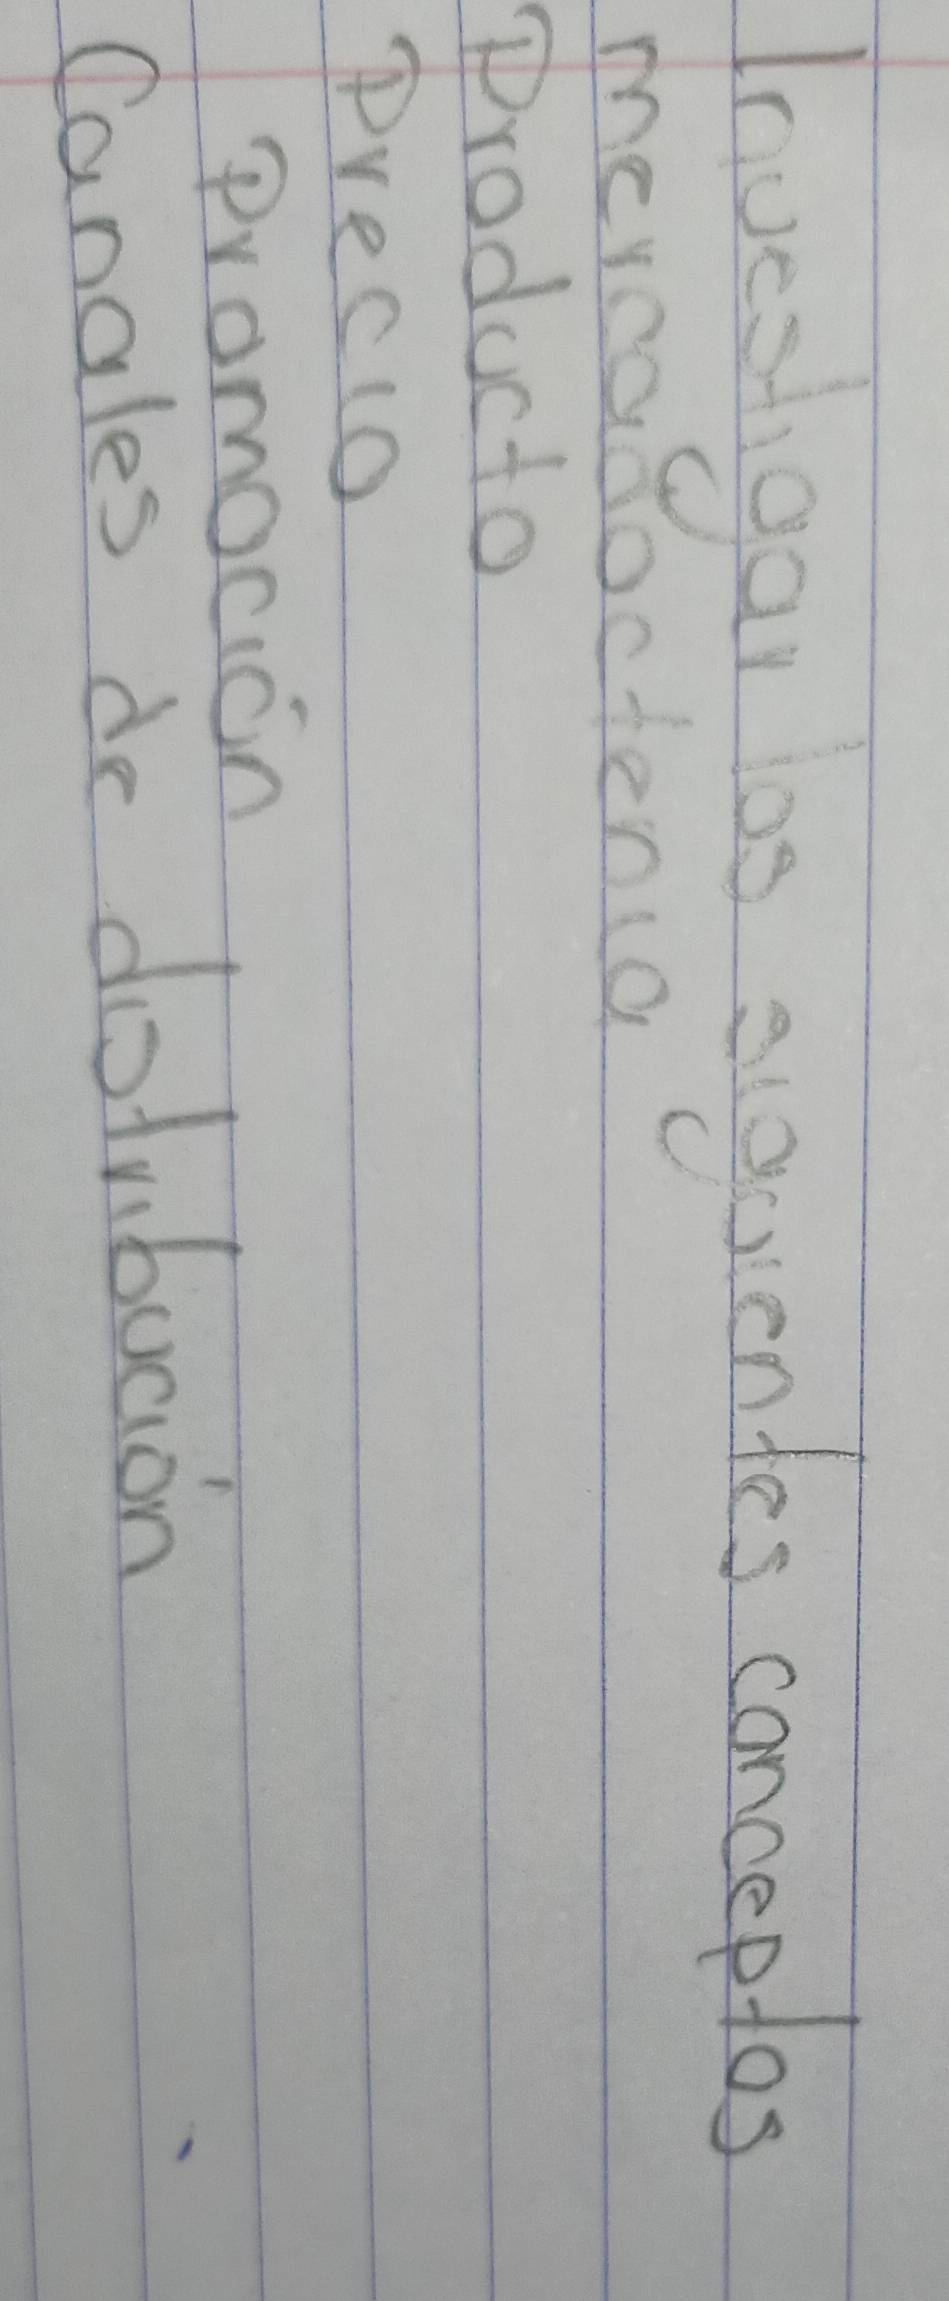 Investigar los siguientes conceptos
mercadoctenia
Producto
Precio
Promoción
Canales de distribución